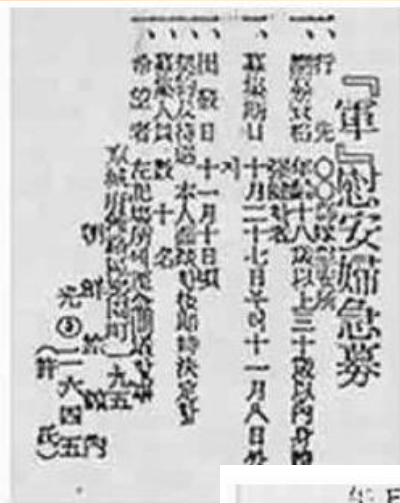 『軍』慰安婦急募
一、行先 〇〇部隊慰安所
一、應募資格 年齡十八歲以上三十歲以內身體强健者
一、募集期日 十月二十七日부터十一月八日까지
一、出發日 十一月十日頃
一、契約及待遇 本人面談後即時決定함
一、募集人員 數十名
一、希望者 左記場所에至急問議할事
京城府鍾路區樂園町一九五
朝鮮旅館內
光③二六四五
(許氏)